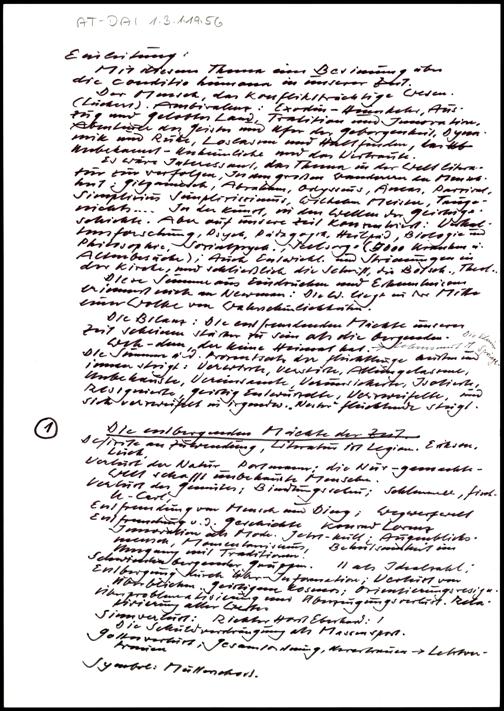 AT-DAI 1.3.1.19.56
Einleitung:
Mit diesem Thema eine Besinnung über
die conditio humana in unserer Zeit.
Der Mensch, das konfliktträchtige Wesen.
(Lückert). Ambivalenz: Exodus - Heimkehr, Aus-
zug und gelobtes Land, Tradition und Innovation,
Abenteuer des Geistes und Ufer der Geborgenheit, Dyna-
mik und Ruhe, Loslassen und Haltfinden, lockt
Unbekannt- Unheimliche und das Vertraute.
Es wäre interessant, das Thema in der Weltlitera-
tur zu verfolgen, in den großen Wanderern der Mensch-
heit: Gilgamesch, Abraham, Odysseus, Aeneas, Parzival,
Simplicius Simplicissimus, Wilhelm Meister, Tauge-
nichts.... In der Kunst, in den Wellen der Geistesge-
schichte. Aber auf unsere Zeit konzentriert: Verhal-
tensforschung, Psych., Pädagogik, Heilpäd., Biologie und
Philosophie, Sozialpsych., Seelsorge (5000 Kranken u.
Altenbesuche); Auch Entwickl. und Strömungen in
der Kirche, und schließlich die Schrift, die Botsch., Theol.
Diese Summe aus Eindrücken und Erkenntnissen
erinnert mich an Newman: Die W. liegt in der Mitte
einer Wolke von Wahrscheinlichkeiten.
Die Bilanz: Die entfremdenden Mächte unserer
Zeit scheinen stärker zu sein als die bergenden.
Weh dem, der keine Heimat hat.
Die Summe u. d. Prozentsatz der Flüchtlinge außen und
innen steigt: Verwirrte, Verstörte, Alleingelassene,
Unbehauste, Vereinsamte, Verunsicherte, Isolierte,
Resignierte, geistig Entwurzelte, Verzweifelte, und
sich verzweifelt in irgendein Nest Flüchtende steigt.
1
Die entbergenden Mächte der Zeit
Defizite an Zuwendung, Literatur ist Legion. Erikson,
Lück.
Verlust der Natur Portmann; die Nur-gemachte-
Welt schafft unbehauste Menschen.
Verlust des Gemütes; Bindungsscheu;
Entfremdung von Mensch und Ding; Wegwerfwelt
Entfremdung v. d. Geschichte Konrad Lorenz
Innovation als Mode. Jetzt-Kult; Augenblicks-
mensch,
Umgang mit Tradition,
Schwinden bergender Gruppen. 11 als Idealzahl;
Entbergung durch Über-Information; Verlust von
Überblick. geistigem Kosmos; Orientierungsresigna-
Überproblematisierung und Überzeugungsverlust. Rela-
tivierung aller Werte
Sinnverlust: Richter Horst Eberhard:!
Die Schuldverdrängung als Massensport.
Gottesverlust; Urvertrauen → Letztver-
trauen
Symbol: Mutterschoß.